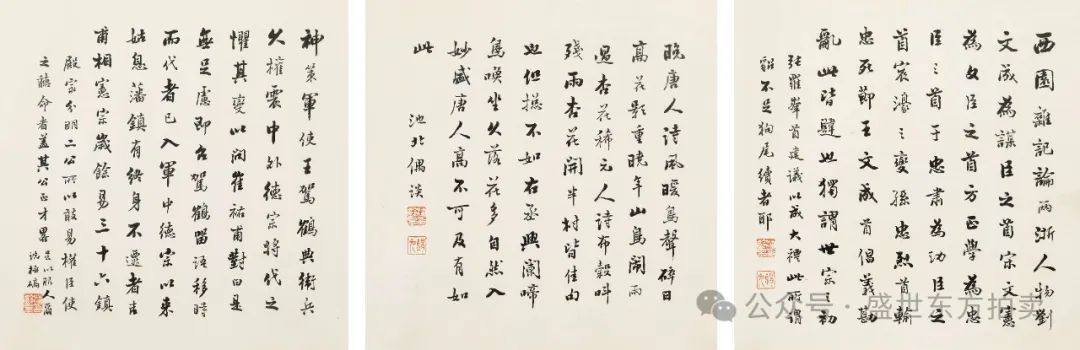 西園雜記論兩浙人物劉
文成為謀臣之首宋文憲
為文臣之首方正學為忠
臣之首于忠肅為功臣之
首宸濠之變孫忠烈首輸
忠死節王文成首倡義勘
亂此皆世獨謂世宗之初
張羅峯首建議以成大禮此所謂
貂不足狗尾續者耶
晚唐人詩風暖鳥聲碎日
高花影重曉來山鳥鬧雨
過杏花稀元人詩布穀叫
殘雨杏花開半村皆佳句
也但總不如右丞興闌啼
鳥喚坐久落花多自然入
妙盛唐人高不可及有如
此
池北偶談
神策軍使王駕鶴典衛兵
久權震中外德宗將代之
懼其變以問崔祐甫對曰是
無足慮即召駕鶴留語移時
而代者已入軍中德宗以來
姑息藩鎮有終身不遷者吉
甫相憲宗歲餘易三十六鎮
殿最分明二公所以能易權臣使
之聽命者蓋其公正才畧足以服人爾
公众号·盛世东方拍卖